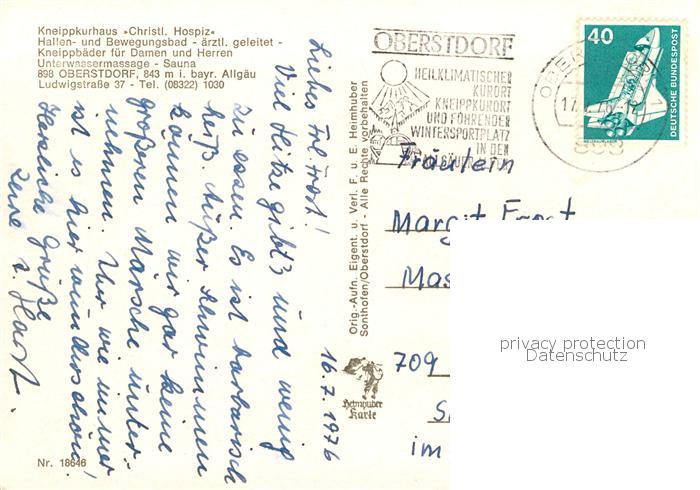 Kneippkurhaus »Christl. Hospiz«
Hallen- und Bewegungsbad - ärztl. geleitet -
Kneippbäder für Damen und Herren
Unterwassermassage - Sauna
898 OBERSTDORF, 843 m i. bayr. Allgäu
Ludwigstraße 37 - Tel. (08322) 1030
Liebes Frl. Frost!
Viel Hitze gibt's und wenig
zu essen. Es ist barbarisch
heiß. Außer Schwimmen
können wir gar keine
größeren Märsche unter-
nehmen. Nur wie immer
ist es hier wunderschön!
Herzliche Grüße
16.7.1976
Nr. 18646
Orig.-Aufn. Eigent. u. Verl. F. u. E. Heimhuber
Sonthofen/Oberstdorf - Alle Rechte vorbehalten
Heimhuber
Karte
OBERSTDORF
HEILKLIMATISCHER
KURORT
KNEIPPKURORT
UND FÜHRENDER
WINTERSPORTPLATZ
IN DEN
40
DEUTSCHE BUNDESPOST
Fräulein
Margit Frost
Mas
709
im
privacy protection
Datenschutz